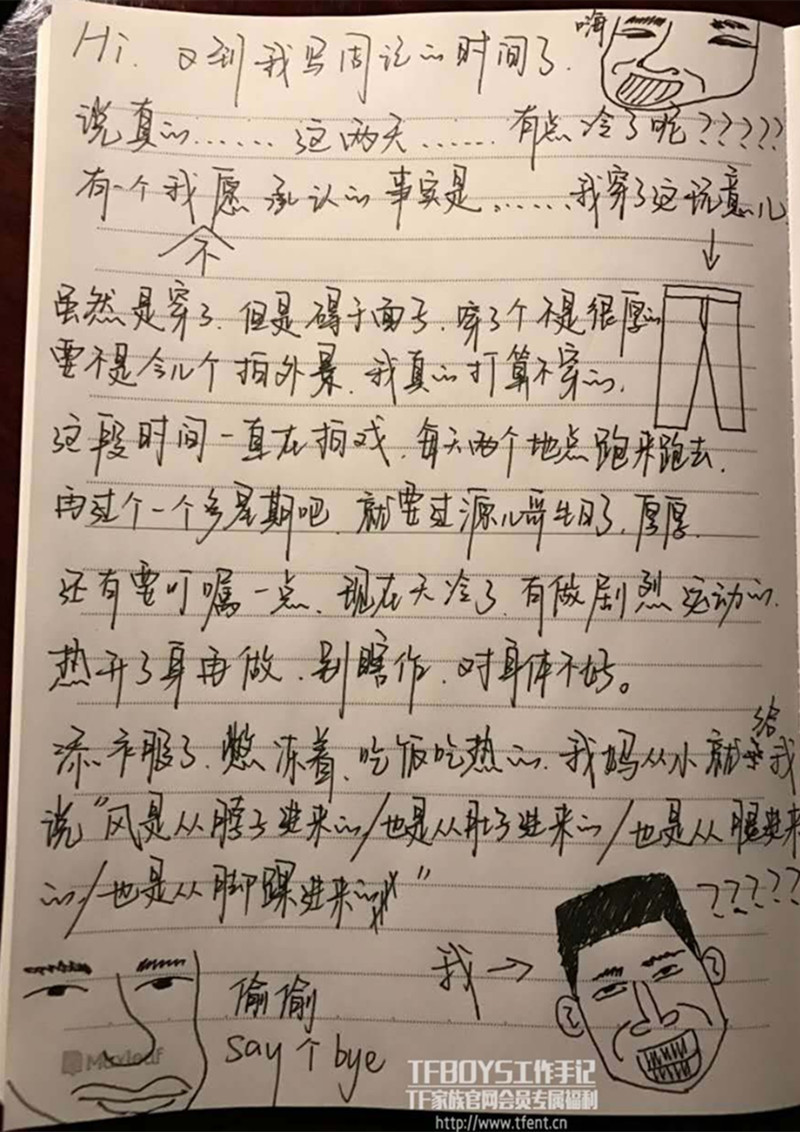 嗨
Hi. 又到我写周记的时间了.
说真的...... 这两天...... 有点冷了呢?????
有一个我愿承认的事实是......我穿了这玩意儿
不
↓
虽然是穿了.但是碍于面子.穿了个不是很厚的
要不是今儿个拍外景.我真的打算不穿的.
这段时间一直在拍戏.每天两个地点跑来跑去.
再过个一个多星期吧.就要过源儿哥生日了.厚厚.
还有要叮嘱一点.现在天冷了.有做剧烈运动的.
热开了身再做.别瞎作.对身体不好。
添衣服了.憋冻着.吃饭吃热的.我妈从小就给我
说“风是从脖子进来的/也是从肚子进来的/也是从腿进来
的/也是从脚踝进来的”
?????
我→
偷偷
say个bye
Maxleaf
TFBOYS工作手记
TF家族官网会员专属福利
http://www.tfent.cn